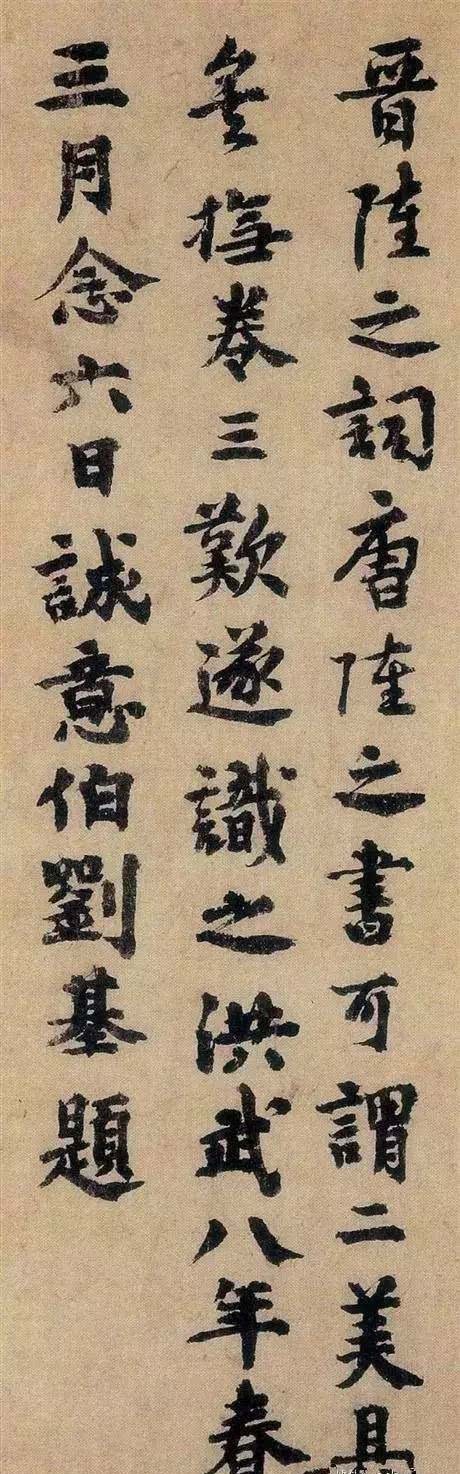 晋陸之詞唐陸之書可謂二美具
矣撫卷三歎遂識之洪武八年春
三月念六日誠意伯劉基題